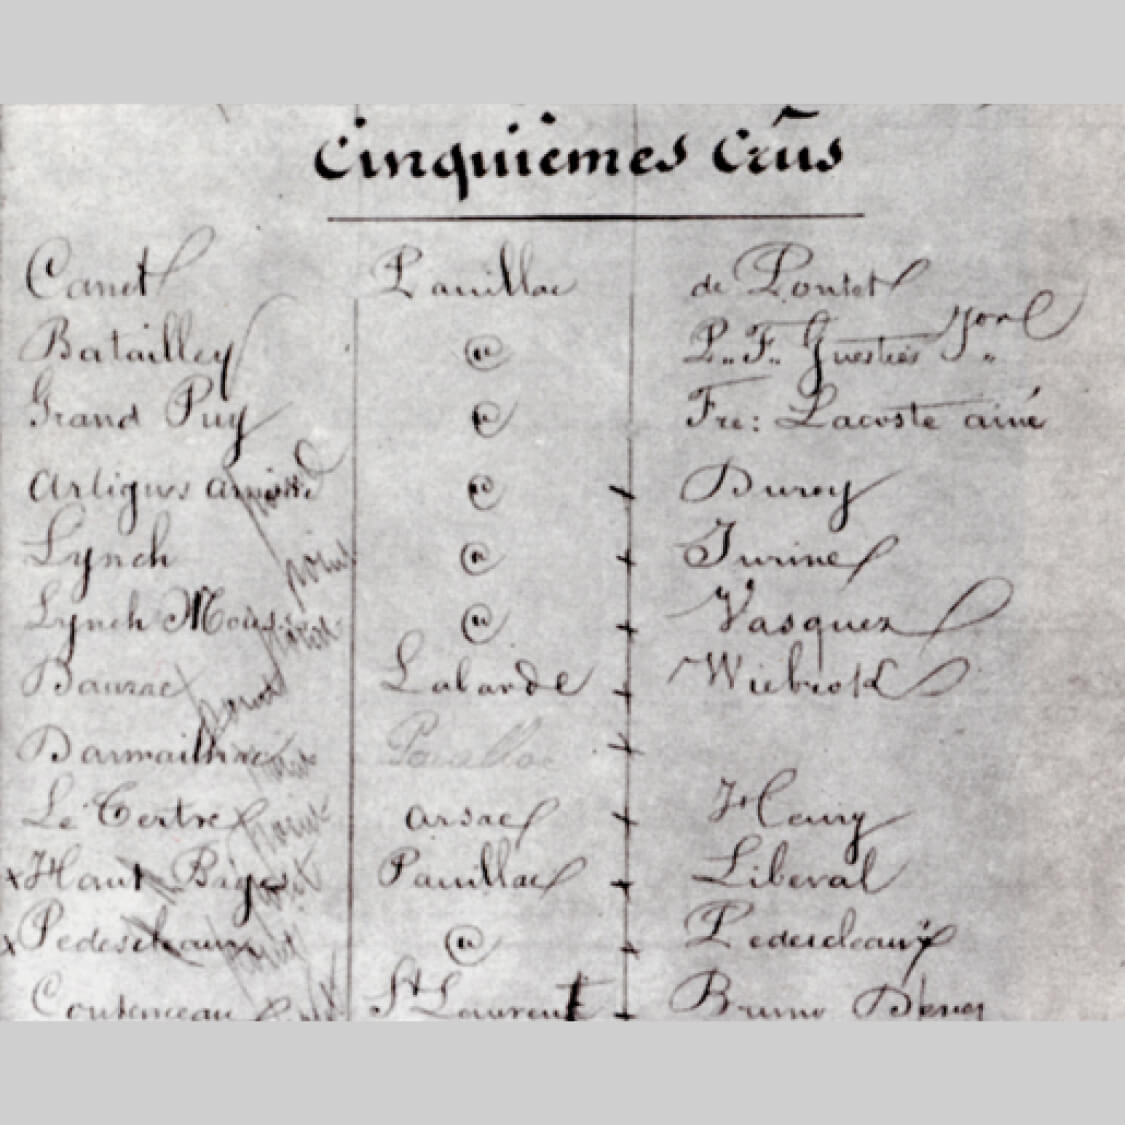 Cinquièmes Crûs
Canet Pauillac de Pontet
Batailley @ P. F. Guestier Jor
Grand Puy @ Fre: Lacoste ainé
Artigues @ Duroy
Lynch @ Jurine
Lynch Mous @ Vasquez
Bauzac Labarde Wiebrok
Darmailhac Pauillac
Le Tertre Arsac Henry
x Haut Bages Pauillac Liberal
x Pedescleaux @ Pedescleaux
Coutenceau St Laurent Bruno Devez